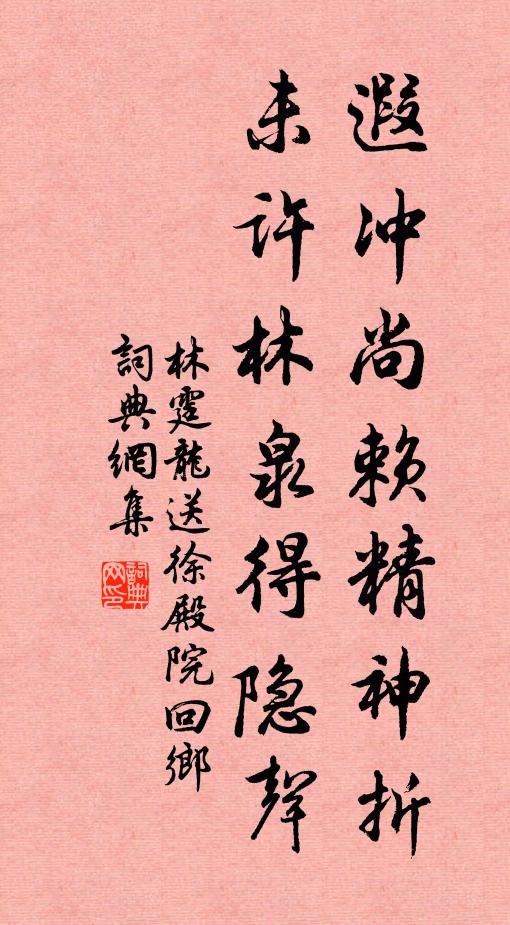 遐冲尚赖精神折
未许林泉得隐聲
林霆龍送徐殿院回鄉
詞典網集
詞典網印